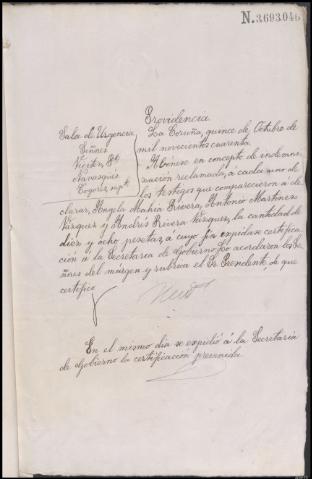 N.3693046
Providencia
Sala de Urgencia
Señores
La Coruña, quince de Octubre de
mil novecientos cuarenta.
Abónese en concepto de indemni-
zación reclamada, a cada uno de
los testigos que comparecieron á de-
clarar, Angela Mahia Rivera, Antonio Martinez
Vazquez y Andrés Rivera Vazquez, la cantidad de
diez y ocho pesetas a cuyo fin expidase certifica-
ción á la Secretaria de Gobierno. Lo acordaron los Se-
ñores del márgen y rubrica el Sr. Presidente, de que
certifico
En el mismo dia se expidió á la Secretaria
de Gobierno la certificacion prevenida